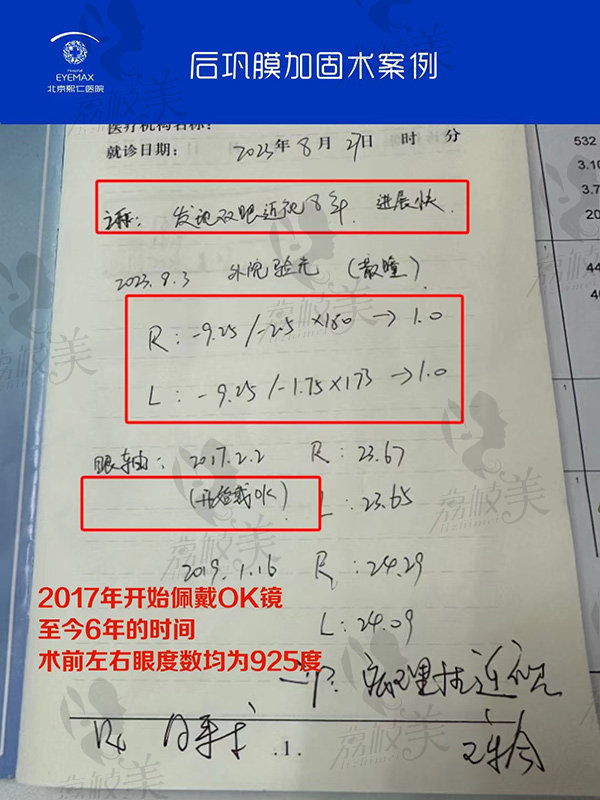 Hospital
EYEMAX
北京熙仁医院
后巩膜加固术案例
医疗机构名称:
就诊日期: 2023年8月27日 时 分
主称: 发现双眼近视8年 进展快.
2023.8.3 外院验光 (散瞳)
R: -9.25/-2.5×180→1.0
L: -9.25/-1.75×173→1.0
眼轴: 2017.2.2 R: 23.67
(开始戴OK) L: 23.65
2019.1.16 R: 24.29
L: 24.09
2017年开始佩戴OK镜
至今6年的时间
术前左右眼度数均为925度
病理性近视
.1.
532
3.10
3.
20
44
40
1.
荔枝美
lizhimei